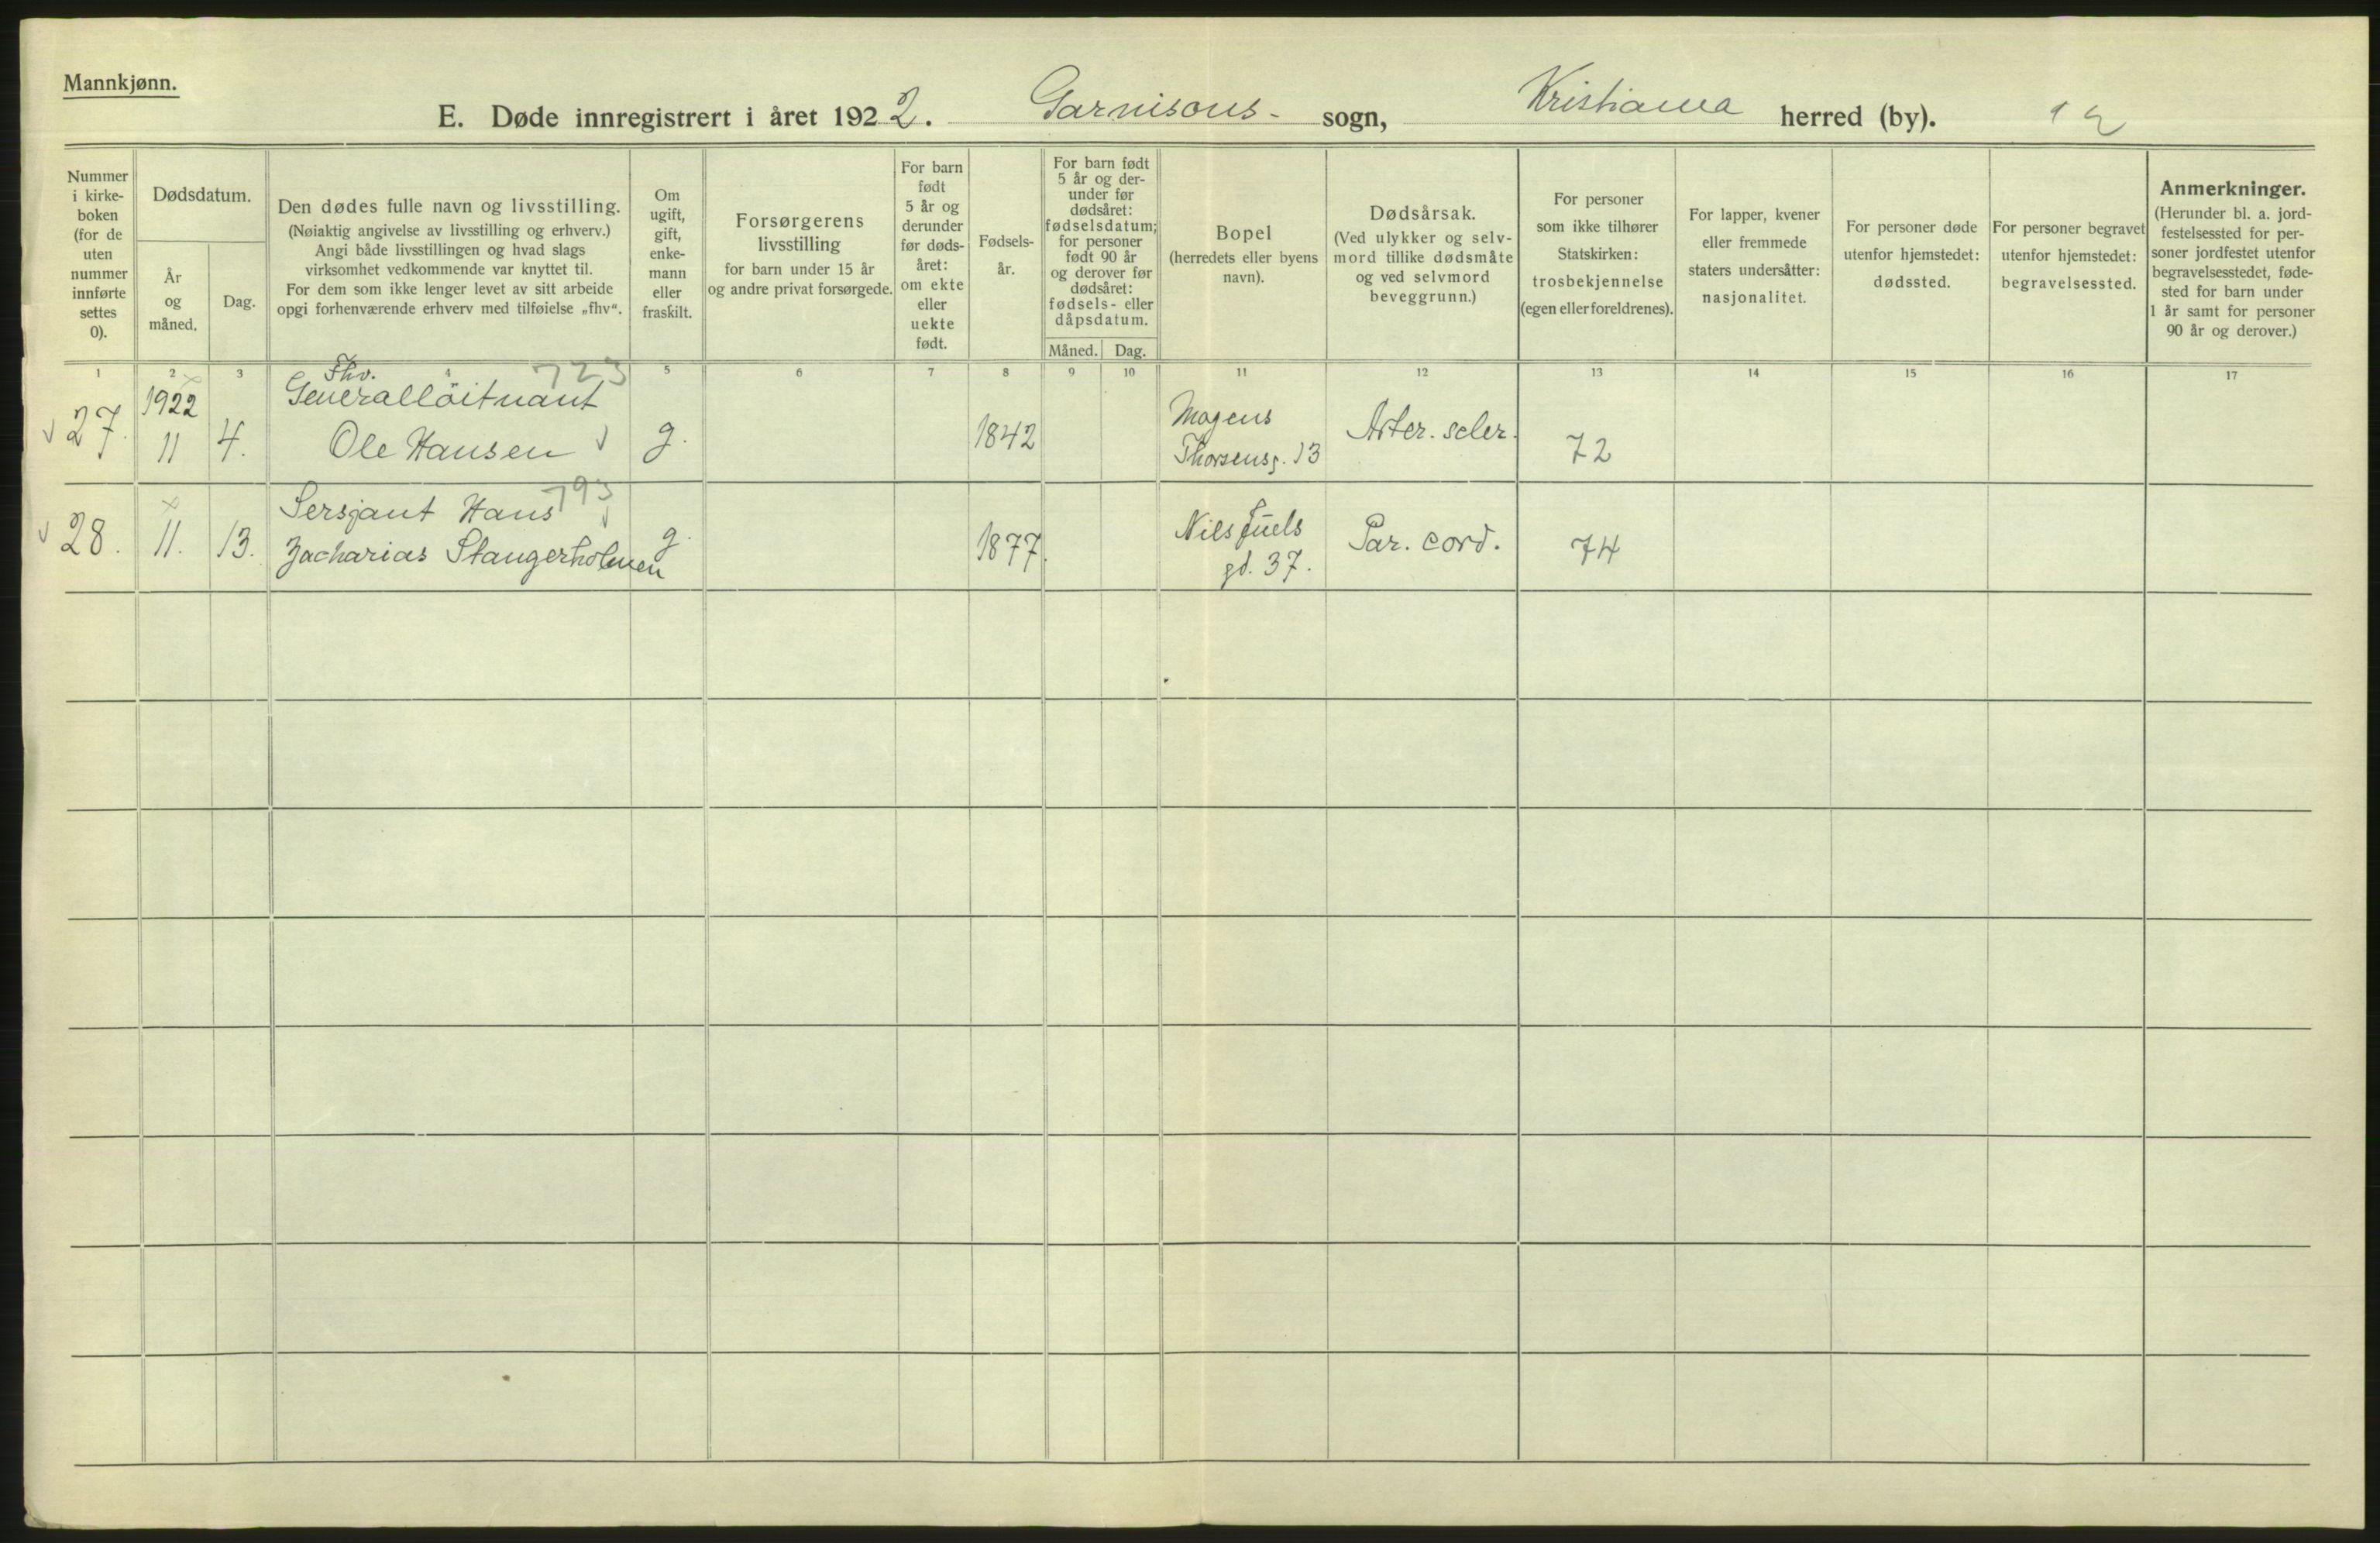 Mannkjønn.
E. Døde innregistrert i året 1922. Garnisons- sogn, Kristiania herred (by). 12
Nummer
i kirke-
boken
(for de
uten
nummer
innførte
settes
0).
Dødsdatum.
År
og
måned.
Dag.
Den dødes fulle navn og livsstilling.
(Nøiaktig angivelse av livsstilling og erhverv.)
Angi både livsstillingen og hvad slags
virksomhet vedkommende var knyttet til.
For dem som ikke lenger levet av sitt arbeide
opgi forhenværende erhverv med tilføielse „fhv“.
Om
ugift,
gift,
enke-
mann
eller
fraskilt.
Forsørgerens
livsstilling
for barn under 15 år
og andre privat forsørgede.
For barn
født
5 år og
derunder
før døds-
året:
om ekte
eller
uekte
født.
Fødsels-
år.
For barn født
5 år og der-
under før
dødsåret:
fødselsdatum;
for personer
født 90 år
og derover før
dødsåret:
fødsels- eller
dåpsdatum.
Måned. Dag.
Bopel
(herredets eller byens
navn).
Dødsårsak.
(Ved ulykker og selv-
mord tillike dødsmåte
og ved selvmord
beveggrunn.)
For personer
som ikke tilhører
Statskirken:
trosbekjennelse
(egen eller foreldrenes).
For lapper, kvener
eller fremmede
staters undersåtter:
nasjonalitet.
For personer døde
utenfor hjemstedet:
dødssted.
For personer begravet
utenfor hjemstedet:
begravelsessted.
Anmerkninger.
(Herunder bl. a. jord-
festelsessted for per-
soner jordfestet utenfor
begravelsesstedet, føde-
sted for barn under
1 år samt for personer
90 år og derover.)
1 2 3 4 5 6 7 8 9 10 11 12 13 14 15 16 17
27.
1922
11
4.
Fhv. 723
Generallöitnant
Ole Hansen
g.
1842
Mogens
Thorsensg. 13
Arter. scler.
72
28.
11.
13.
Sersjant Hans 793
Zacharias Stangerholmen
g.
1877.
Nils Juels
gd. 37.
Par. cord.
74